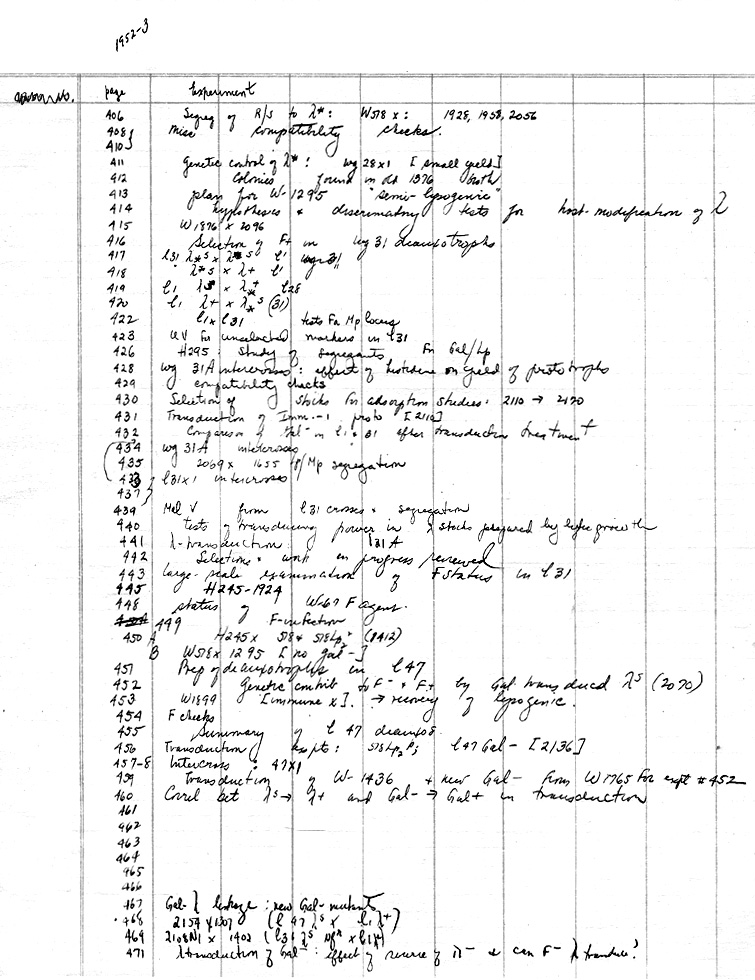 1952-3
page Experiment
406 Segreg of R/S to λ*: W518 x: 1928, 1958, 2056
408 Misc compatibility checks.
410
411 Genetic control of λ*: wg 28x1 [small yield]
412 Colonies found in old 1376 broth
413 plan for W-1295 "semi-lysogenic"
414 hypothesis & discriminatory tests for host-modification of λ
415 W1876 x 2096
416 Selection of F+ in wg 31 deauxotrophs
417 l31 λ*s x λ*s l1
418 λ*s x λ+ l1
419 l1 x λ* l28
420 l1 λ+ x λ*s (31)
422 l1 x l31 tests for Mp locus
423 UV for unselected markers in l31
426 H295: Study of segregants for Gal/Lp
428 wg 31A intercrosses: effect of histidine on yield of prototrophs
429 compatibility checks
430 Selection of stocks for adsorption studies: 2110 → 2170
431 Transduction of Imm.-1 proto [2110]
432 Comparison of Gal- in l1 & 31 after transduction treatment
434 wg 31A intercrosses
435 2069 x 1655 Mp segregation
l31x1 intercrosses
437
439 Mel V from l31 crosses & segregation
440 tests of transducing power in λ stocks prepared by lytic growth
441 λ-transduction l31A
442 Selections & work in progress reviewed
443 large-scale examination of F status in l31
445 H245-1924
448 status of W-67 F agent.
449 F-infection
450 A H245 x 518 & 518Lp2r (8412)
B W518 x 1295 [no gal-]
451 Prep of deauxotrophs in l47
452 Genetic contrib to F- & F+ by Gal transduced λs (2070)
453 W1899 [immune x]. → recovery of lysogenic.
454 F checks
455 Summary of l47 deauxos.
456 Transduction expts: 518Lp2r; l47 Gal- [2136]
457-8 Intercross: 47x1
459 Transduction of W-1436 & new Gal- from W1765 for expt #452
460 Correl bet λs → λ+ and Gal- → Gal+ in transduction
461
462
463
464
465
466
467 Gal-λ linkage: new Gal- mutants
468 2154 x 1307 (l47 λs x l1 λ+)
469 2108N1 x 1402
471 λ transduction of Gal-: effect of reverse of λ- & can F- λ transduce?